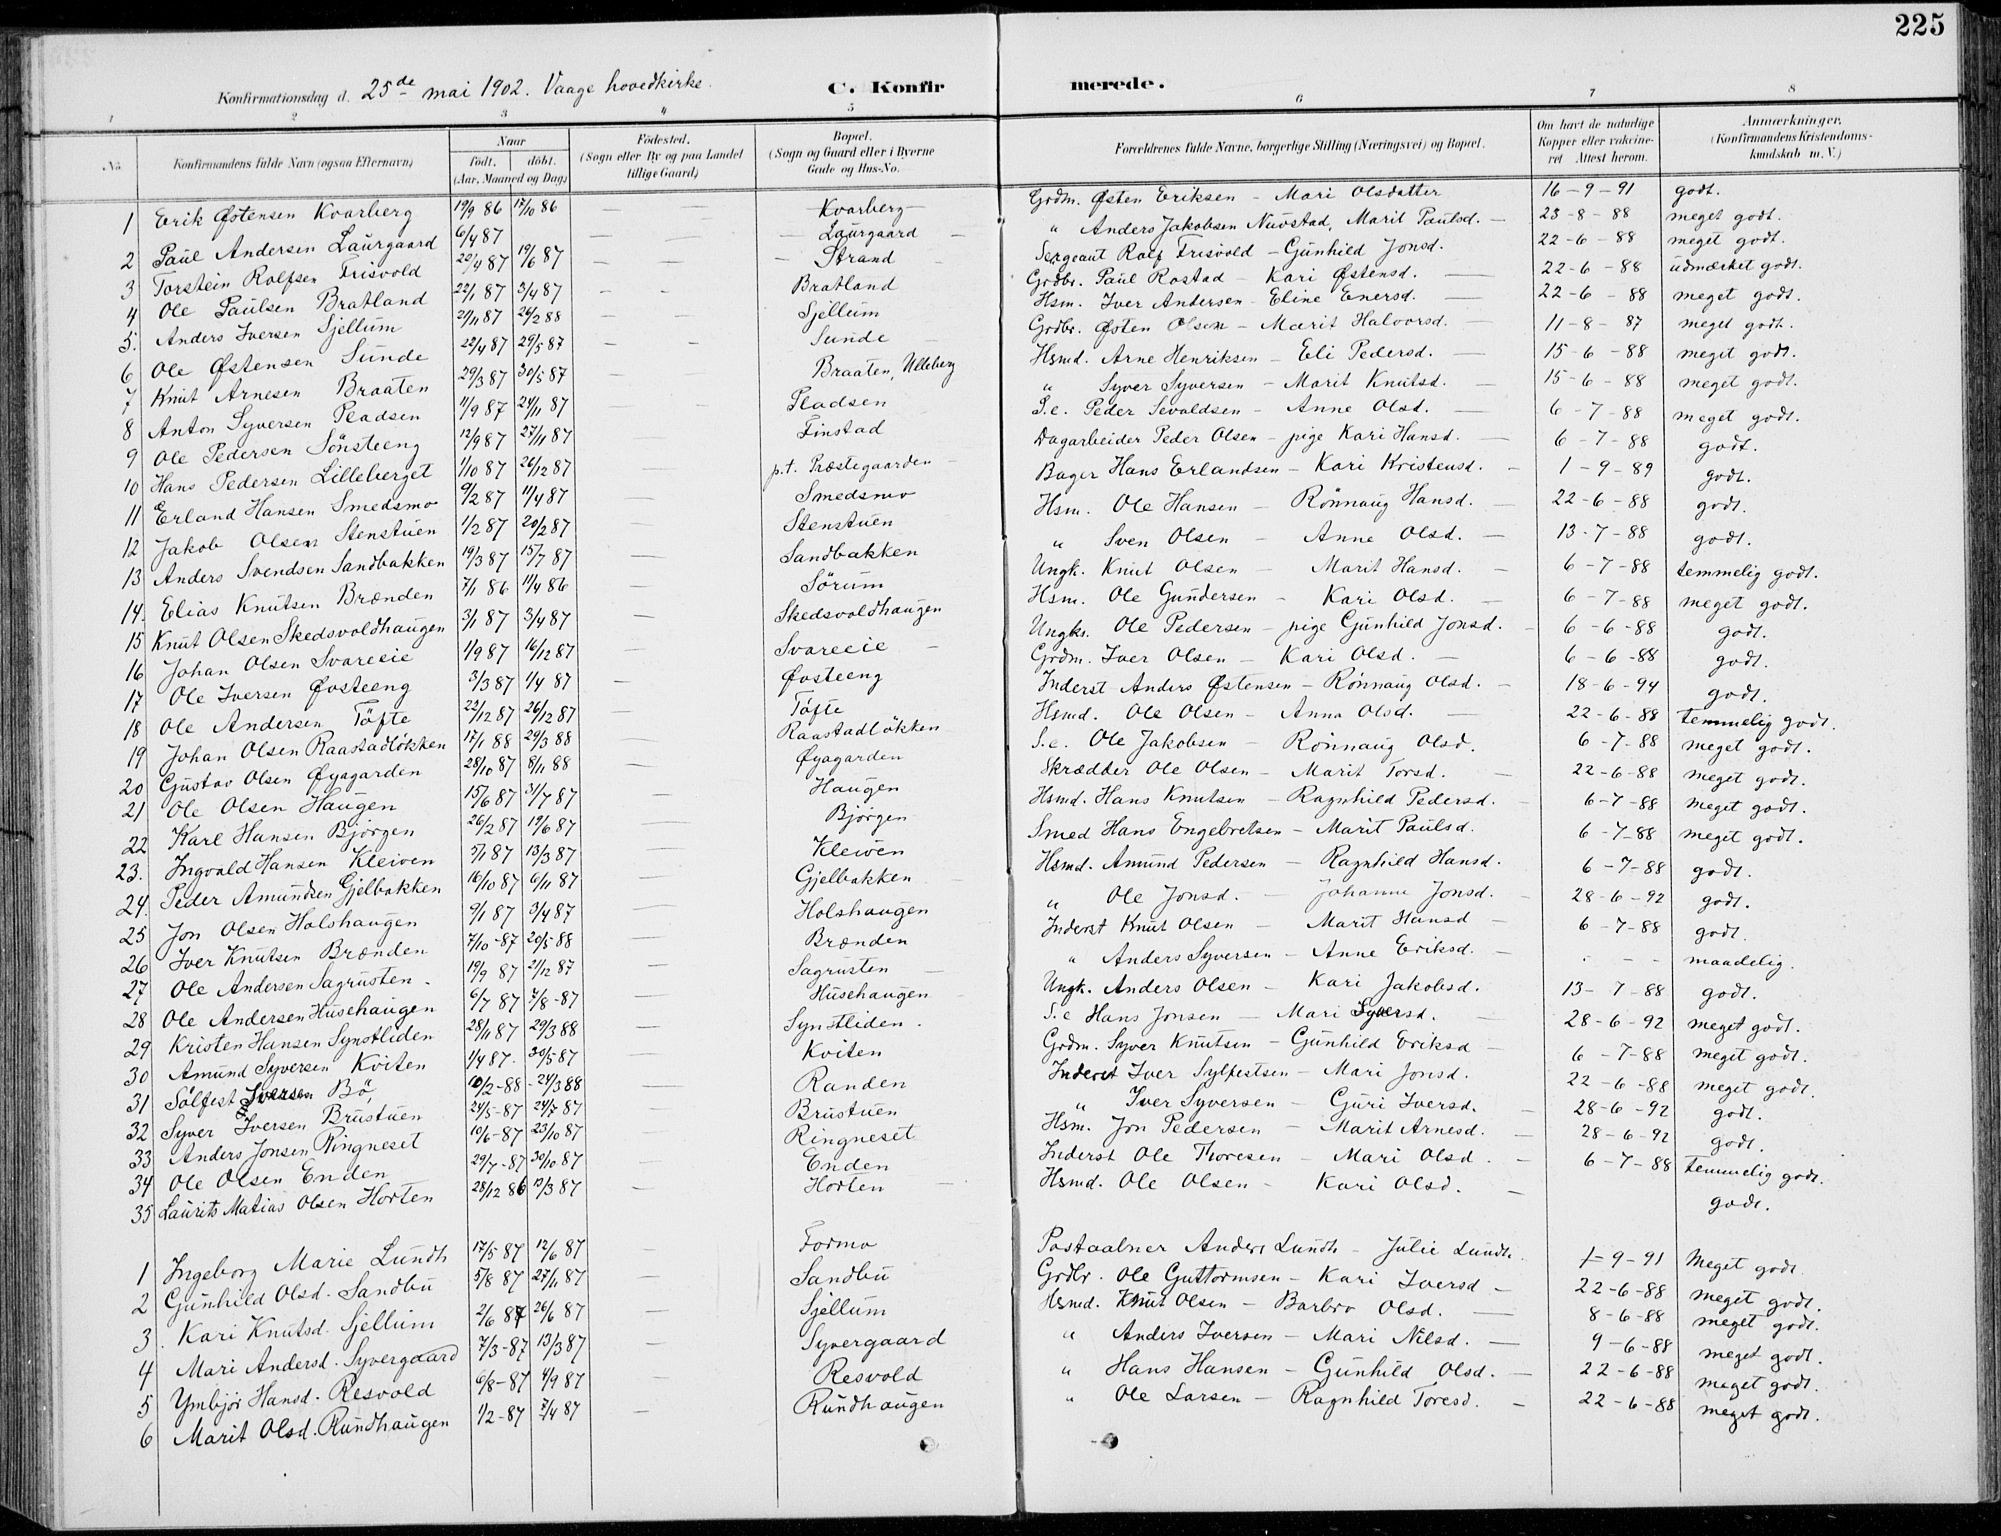 225
Konfirmationsdag d. 25de mai 1902. Vaage hovedkirke. C. Konfirmerede.
1 2 3 4 5 6 7 8
No. Konfirmandens fulde Navn (ogsaa Efternavn) Naar født. døbt. (Aar, Maaned og Dag) Fødested. (Sogn eller By og paa Landet tillige Gaard) Bopæl. (Sogn og Gaard eller i Byerne Gade og Hus-No. Forældrenes fulde Navne, borgerlige Stilling (Næringsvei) og Bopæl. Om havt de naturlige Kopper eller vakcineret Attest herom. Anmærkninger. (Konfirmandens Kristendomskundskab m. V.)
1 Erik Østensen Kvarberg 19/9 86 17/10 86 — — Kvarberg Grdm. Østen Eriksen — Mari Olsdatter 16-9-91 godt.
2 Paul Andersen Laurgaard 6/4 87 — — Laurgaard " Anders Jakobsen Nuvstad, Marit Paulsd. 23-8-88 meget godt.
3 Torstein Rolfsen Frisvold 20/4 87 19/6 87 — — Strand Sergeant Rolf Frisvold — Gunhild Jonsd. 22-6-88 meget godt.
4 Ole Paulsen Bratland 22/1 87 3/4 87 — — Bratland Grdbr. Paul Rostad — Kari Østensd. 22-6-88 udmærket godt.
5. Anders Iversen Sjellum 21/11 87 26/2 88 — — Sjellum Hsm. Iver Andersen — Eline Enersd. 22-6-88 meget godt.
6 Ole Østensen Sunde 22/4 87 29/5 87 — — Sunde Grdbr. Østen Olsen — Marit Halvorsd. 11-8-87 meget godt.
7 Knut Arnesen Braaten 29/3 87 30/5 87 — — Braaten, Ulleberg Hsmd. Arne Henriksen — Eli Pedersd. 15-6-88 meget godt.
8 Anton Syversen Pladsen 11/9 87 24/11 87 — Pladsen " Syver Syversen — Marit Knutsd. 15-6-88 meget godt.
9 Ole Pedersen Sönsteeng 12/9 87 27/11 87 — Finstad S.e. Peder Sevaldsen — Anne Olsd. 6-7-88 meget godt.
10 Hans Pedersen Lilleberget 1/10 87 26/12 87 — p.t. Præstegaarden Dagarbeider Peder Olsen — pige Kari Hansd. 6-7-88 godt.
11 Erland Hansen Smedsmo 9/2 87 11/4 87 — Smedsmo Bager Hans Erlandsen — Kari Kristensd. 1-9-89 godt.
12 Jakob Olsen Stenstuen 1/2 87 20/2 87 — Stenstuen Hsm. Ole Hansen — Rönnaug Hansd. 22-6-88 godt.
13 Anders Svendsen Sandbakken 19/3 87 15/7 87 — Sandbakken " Sven Olsen — Anne Olsd. 13-7-88 godt.
14. Elias Knutsen Brænden 7/1 86 11/4 86 — Sörum Ungk. Knut Olsen — Marit Hansd. 6-7-88 temmelig godt.
15 Knut Olsen Skedsvoldhaugen 3/1 87 3/4 87 — Skedsvoldhaugen Hsm. Ole Gundersen — Kari Olsd. 6-7-88 meget godt.
16 Johan Olsen Svareeie 1/9 87 16/12 87 — Svareeie Ungkr. Ole Pedersen — pige Gunhild Jonsd. 6-6-88 godt.
17 Ole Iversen Øvsteeng 3/3 87 1/4 87 — Øvsteeng Grdm. Iver Olsen — Kari Olsd. 6-6-88 godt.
18 Ole Andersen Töfte 22/12 87 26/12 87 — Töfte Inderst Anders Østensen — Rönnaug Olsd. 18-6-94 godt.
19 Johan Olsen Raastadlökken 17/1 88 29/3 88 — Raastadlökken Hsmd. Ole Olsen — Anna Olsd. 22-6-88 temmelig godt.
20 Gustav Olsen Øyagarden 28/10 87 8/11 88 — Øyagarden S.e. Ole Jakobsen — Rönnaug Olsd. 6-7-88 meget godt.
21 Ole Olsen Haugen 15/6 87 31/7 87 — Haugen Skrædder Ole Olsen — Marit Torsd. 22-6-88 meget godt.
22 Karl Hansen Bjørgen 26/2 87 19/6 87 — Bjørgen Hsmd. Hans Knutsen — Ragnhild Pedersd. 6-7-88 meget godt.
23. Ingvald Hansen Kleiven 5/1 87 13/3 87 — Kleiven Smed Hans Engebretsen — Marit Paulsd. 6-7-88 meget godt.
24. Peder Amundsen Gjelbakken 16/10 87 6/11 87 — Gjelbakken Hsmd. Amund Pedersen — Ragnhild Hansd. 6-7-88 godt.
25 Jon Olsen Holshaugen 9/1 87 3/4 87 — Holshaugen " Ole Jonsd. — Johanne Jonsd. 28-6-92 godt.
26 Iver Knutsen Brænden 7/10-87 20/5-88 — Brænden Inderst Knut Olsen — Marit Hansd 6-7-88 godt.
27 Ole Andersen Sagrusten. 19/9 87 21/12 87 — Sagrusten " Anders Syversen — Anne Eriksd. - - - maadelig.
28 Ole Andersen Husehaugen 6/7 87 7/8-87 — Husehaugen Ungk. Anders Olsen — Kari Jakobsd. 13-7-88 godt.
29 Kristen Hansen Synstliden 28/11 87 29/3 88 — Synstliden. S.e Hans Jonsen — Mari Syversd. 28-6-92 meget godt.
30 Amund Syversen Kviten 1/4 87. 30/5 87 — Kviten Grdm. Syver Knutsen — Gunhild Eriksd 6-7-88 meget godt.
31 Sölfest Iversen Bö, 10/2-88 24/3 88 — Randen Inderst Iver Sylfestsen — Mari Jonsd. 22-6-88 meget godt.
32 Syver Iversen Brustuen 24/5-87 24/7 87 — Brustuen " Iver Syversen — Guri Iversd. 28-6-92 godt.
33 Anders Jonsen Ringneset 10/6-87 23/10 87 — Ringneset Hsm. Jon Pedersen — Marit Arnesd. 28-6-92 godt.
34 Ole Olsen Enden 29/7-87 30/10 87 — Enden Inderst Ole Thoresen — Mari Olsd. 6-7-88 temmelig godt.
35 Laurits Matias Olsen Horten 28/12 86 13/3 87 — Horten Hsmd. Ole Olsen — Kari Olsd. godt.
1 Ingeborg Marie Lundh 17/5 87 12/6 87 — Formo Postaabner Anders Lundh — Julie Lundh 1-9-91 Meget godt
2 Gunhild Olsd. Sandbu 5/8 87 27/11 87 — Sandbu Grdbr. Ole Guttormsen — Kari Iversd 22-6-88 meget godt.
3. Kari Knutsd. Sjellum 2/6 87 26/6 87 — Sjellum Hsmd. Knut Olsen — Barbro Olsd. 8-6-88 meget godt.
4 Mari Andersd. Syvergaard 7/3-87 13/3 87 — Syvergaard " Anders Iversen — Mari Nilsd. 9-6-88 meget godt.
5 Ymbjør Hansd. Resvold 6/8-87 4/9 87 — Resvold " Hans Hansen — Gunhild Olsd. 22-6-88 meget godt.
6 Marit Olsd. Rundhaugen 1/2-87 7/4 87 — Rundhaugen " Ole Larsen — Ragnhild Toresd. 22-6-88 meget godt.